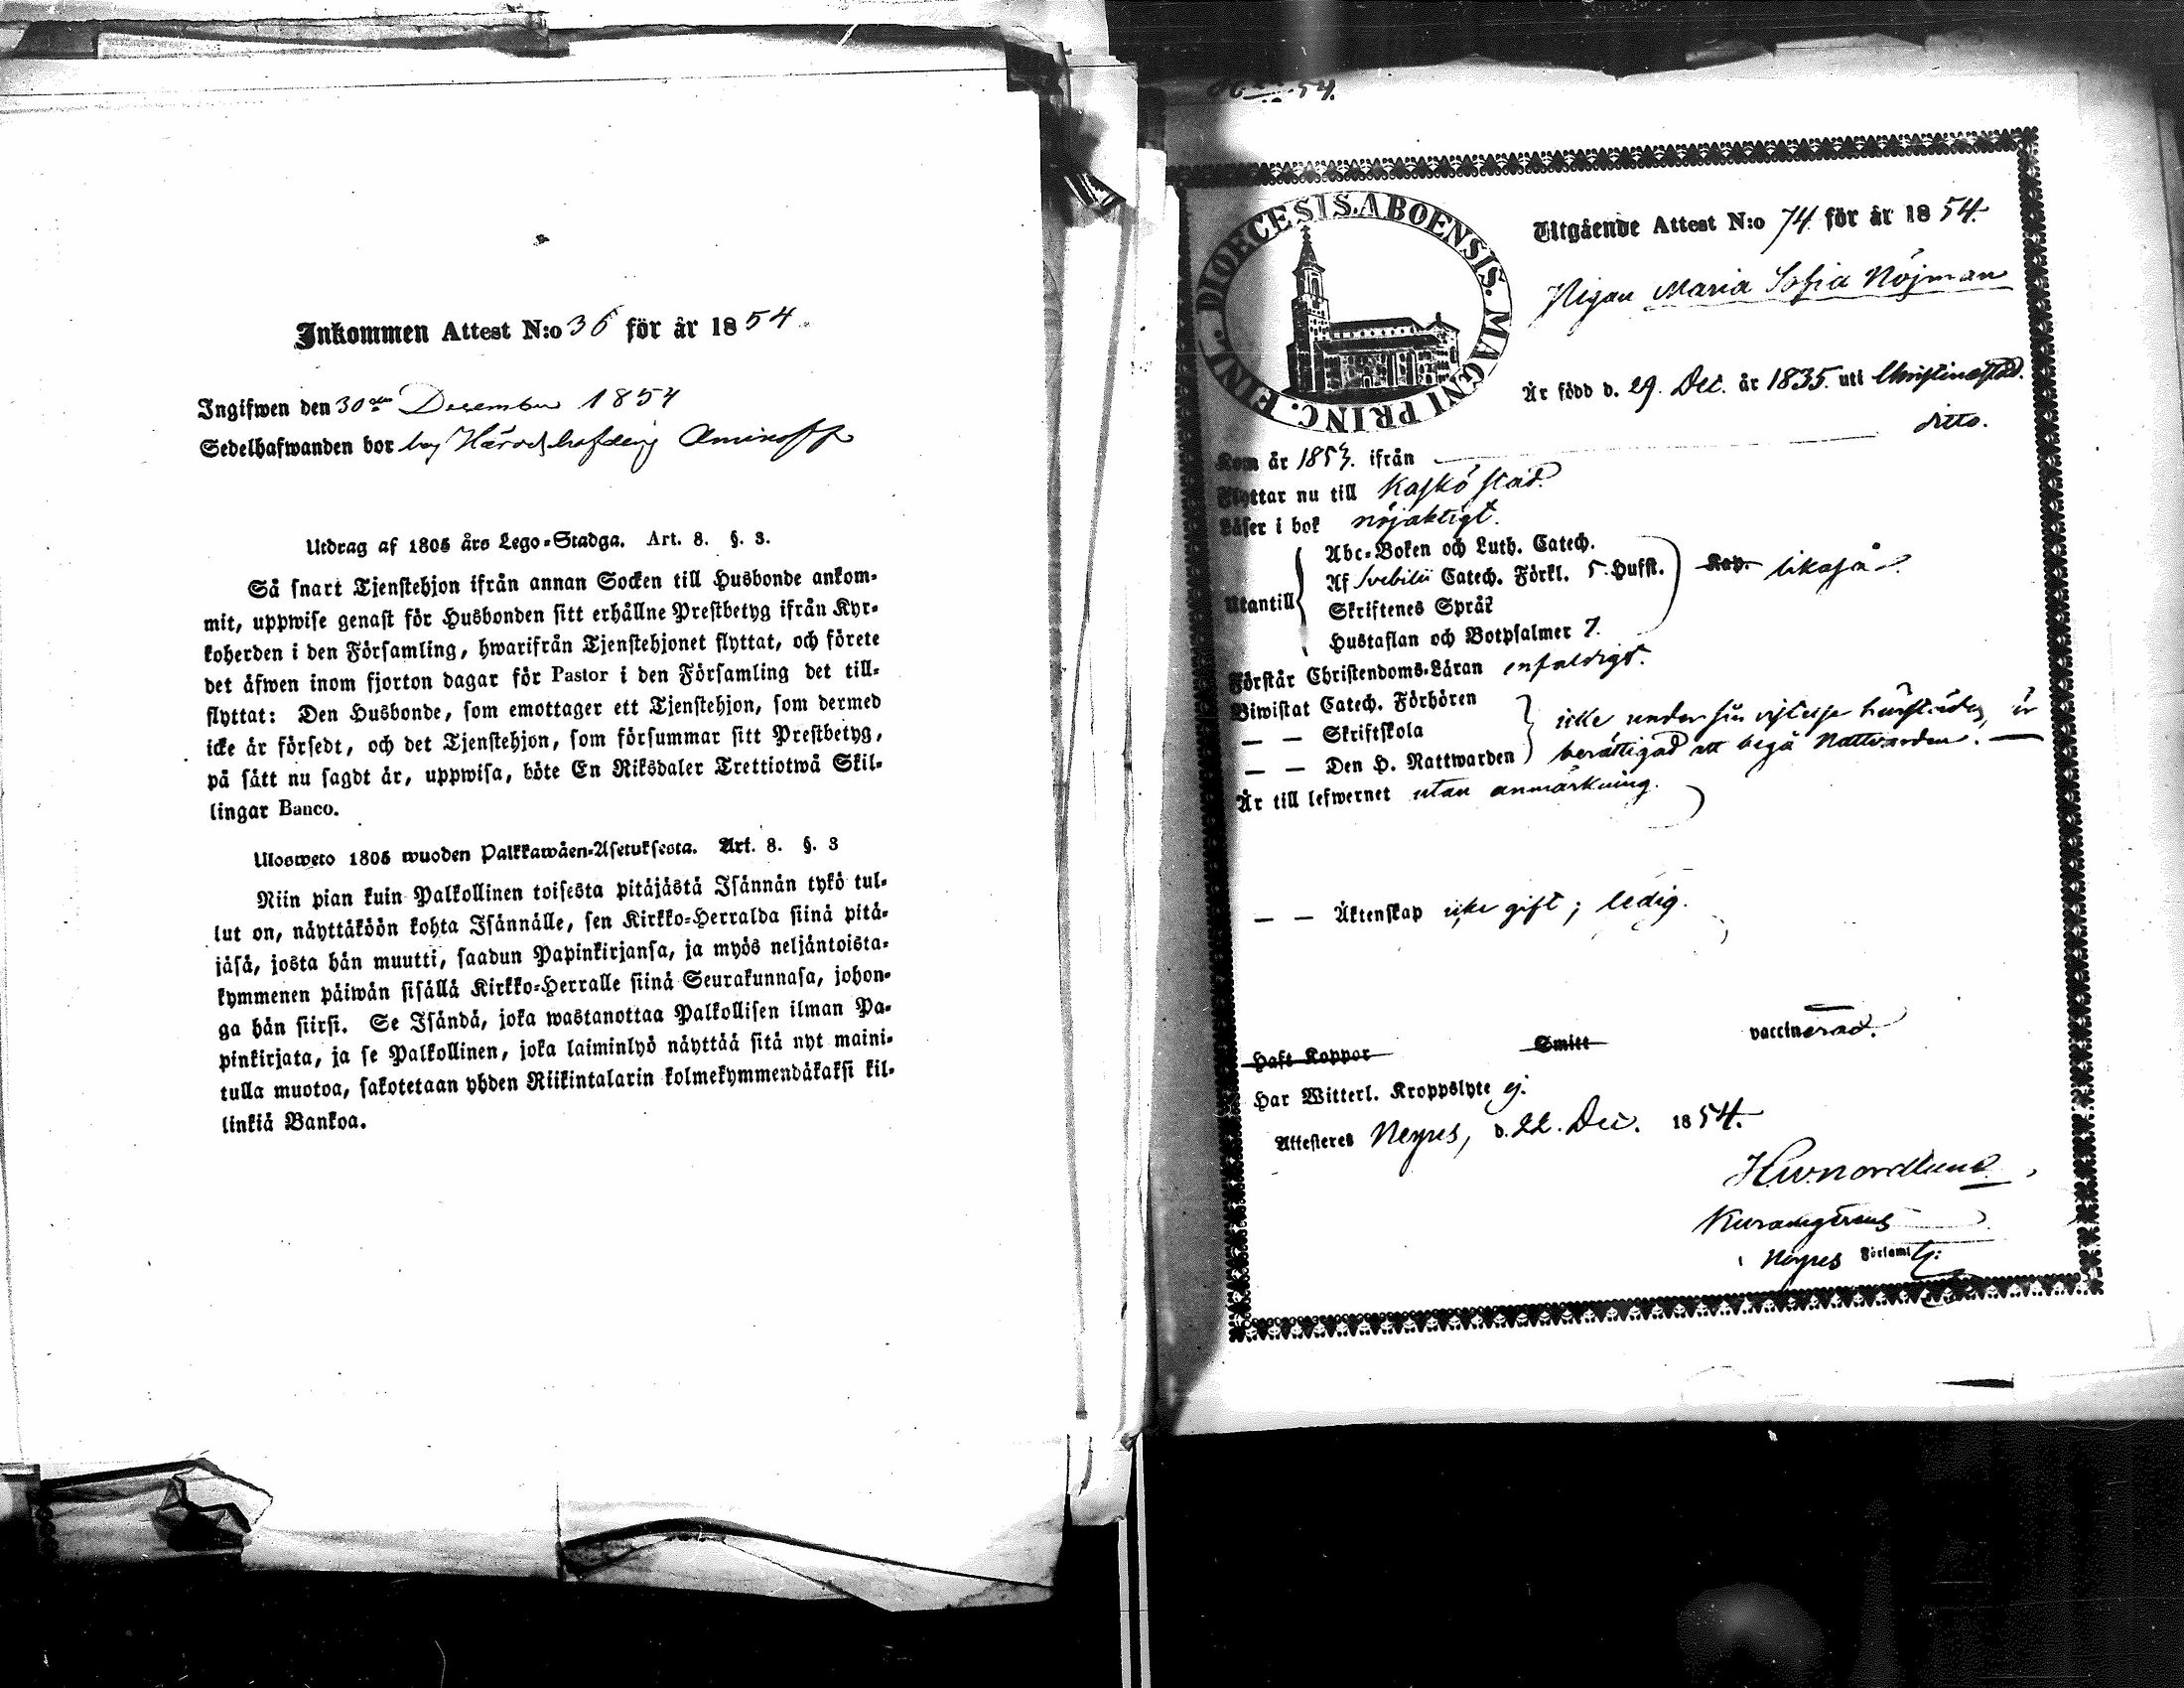 Inkommen Attest N:o 36 för år 1854
Ingifwen den 30 December 1854
Sedelhafwanden bor hos Häradshöfding Aminoff
Utdrag af 1805 års Lego-Stadga. Art. 8. §. 3.
Så snart Tjenstehjon ifrån annan Socken till Husbonde ankom-
mit, uppwise genast för Husbonden sitt erhållne Prestbetyg ifrån Kyr-
koherden i den Församling, hwarifrån Tjenstehjonet flyttat, och förete
det äfwen inom fjorton dagar för Pastor i den Församling det till-
flyttat: Den Husbonde, som emottager ett Tjenstehjon, som dermed
icke är försedt, och det Tjenstehjon, som försummar sitt Prestbetyg,
på sätt nu sagdt är, uppwisa, böte En Riksdaler Trettiotwå Skil-
lingar Banco.
Ulosweto 1805 wuoden Palkkawäen-Asetuksesta. Art. 8. §. 3
Niin pian kuin Palkollinen toisesta pitäjästä Isännän tykö tul-
lut on, näyttäköön kohta Isännälle, sen Kirkko-Herralda siinä pitä-
jäsä, josta hän muutti, saadun Papinkirjansa, ja myös neljäntoista-
kymmenen päiwän sisällä Kirkko-Herralle siinä Seurakunnasa, johon-
ga hän siirsi. Se Isändä, joka wastanottaa Palkollisen ilman Pa-
pinkirjata, ja se Palkollinen, joka laiminlyö näyttää sitä nyt maini-
tulla muotoa, sakotetaan yhden Riikintalarin kolmekymmendäkaksi kil-
linkiä Bankoa.
54.
DIOECESIS. ABOENSIS. MAGNI PRINC. FINL.
Utgående Attest N:o 74 för år 1854.
Pigan Maria Sofia Nöjman
Är född d. 29. Dec. år 1835. uti Christinæstad.
Kom år 1853. ifrån ditto.
Flyttar nu till Kaskö stad.
Läser i bok nöjaktigt.
Utantill
Abc-Boken och Luth. Catech.
Af Svebilii Catech. Förkl. 5. Hufst.
Skriftenes Språk
Hustaflan och Botpsalmer 7.
Kap. likaså.
Förstår Christendoms-Läran enfaldigt.
Biwistat Catech. Förhören
— — Skriftskola
— — Den H. Nattwarden
icke under sin vistelse härstädes, är
berättigad att begå Nattvarden. —
Är till lefwernet utan anmärkning.
— — Äktenskap icke gift; ledig.
Haft Koppor Smitt vaccinerad.
Har Witterl. Kroppslyte ej.
Attesteres Nerpes, d. 22. Dec. 1854.
Nordlund
i Nerpes Församl: